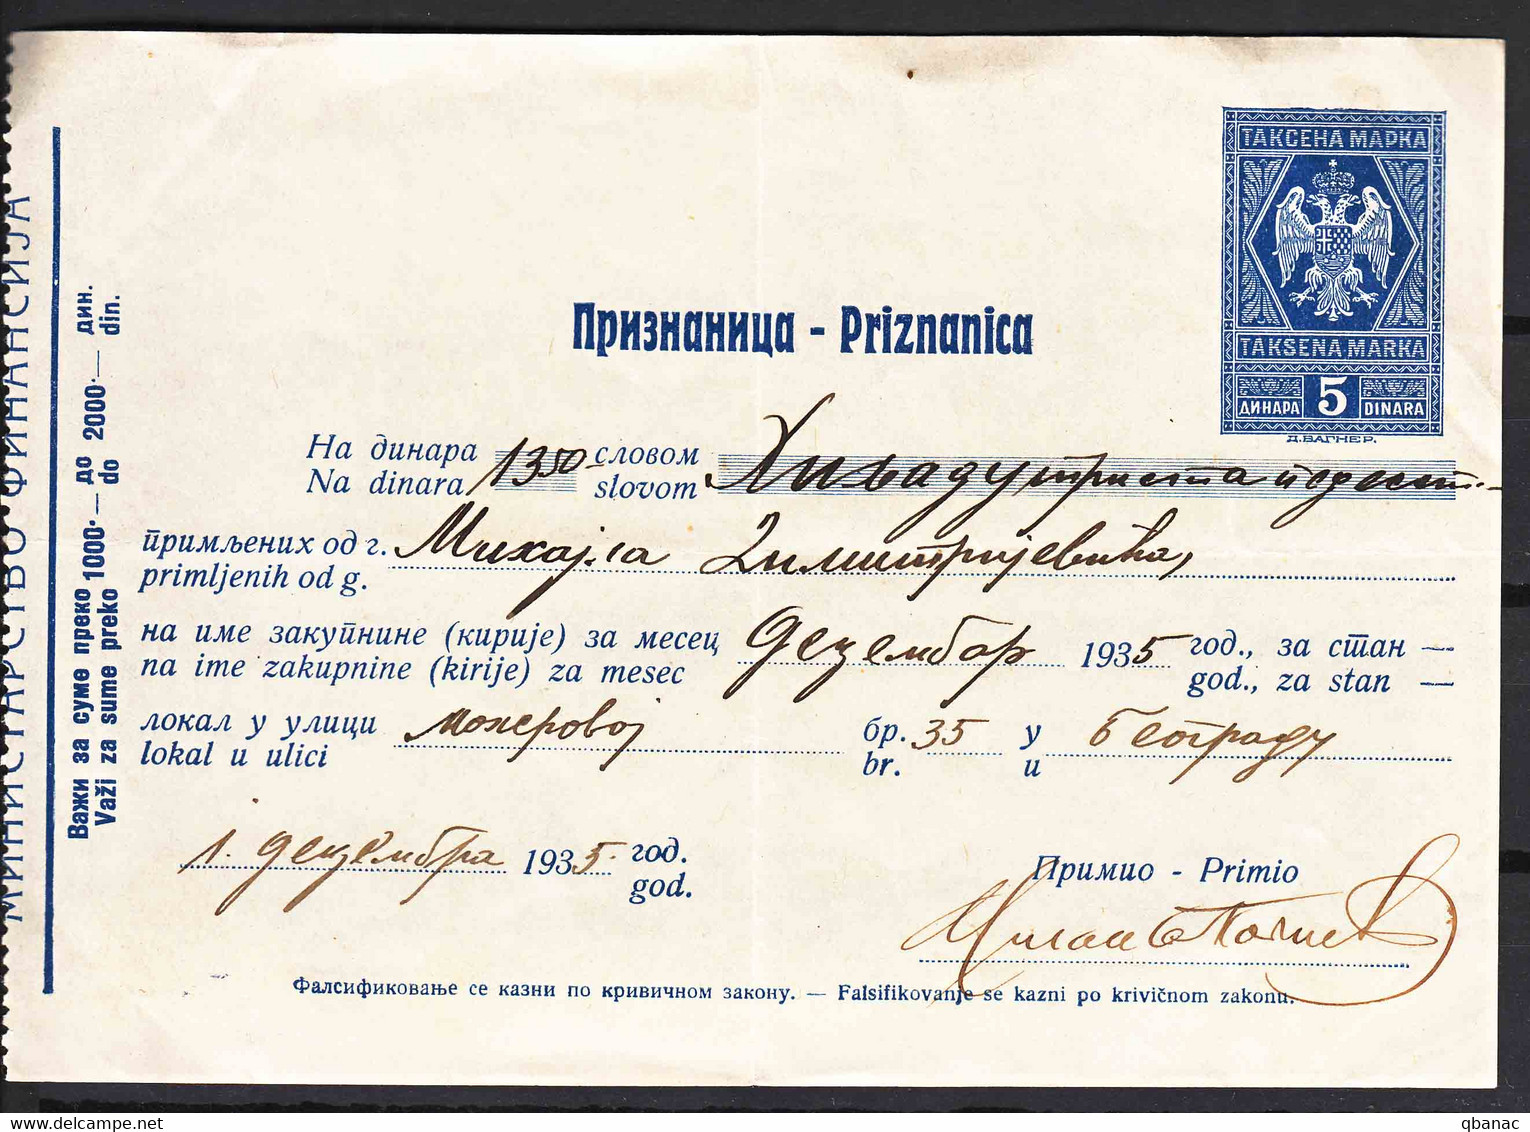 ТАКСЕНА МАРКА
TAKSENA MARKA
ДИНАРА 5 DINARA
Д. ВАГНЕР.
Признаница - Priznanica
На динара 1350 словом Хиљаду триста педесет
Na dinara slovom
примљених од г. Михајла Димитријевића,
primljenih od g.
на име закупнине (кирије) за месец децембар 1935 год., за стан —
na ime zakupnine (kirije) za mesec god., za stan —
локал у улици бр. 35 у Београду
lokal u ulici br. u
1. децембра 1935. год.
god.
Примио - Primio
Фалсификовање се казни по кривичном закону. — Falsifikovanje se kazni po krivičnom zakonu.
МИНИСТАРСТВО ФИНАНСИЈА
Важи за суме преко 1000·— до 2000·— дин.
Važi za sume preko 1000·— do 2000·— din.
qbanac